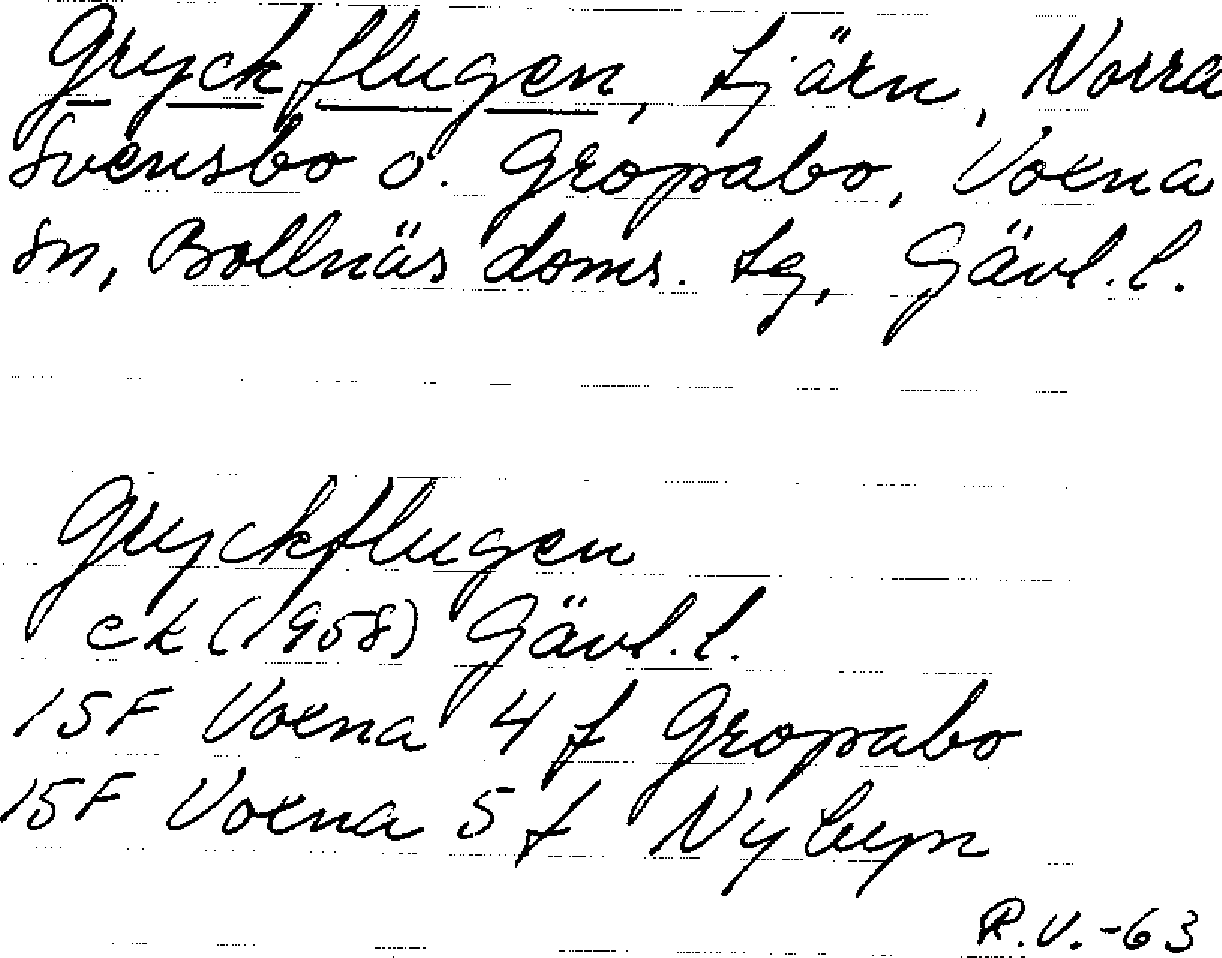 Gryckflugen, tjärn, Norra
Svensbo o. Gropabo, Voxna
sn, Bollnäs doms. tg, Gävl.l.
Gryckflugen
ek (1958) Gävl.l.
15F Voxna 4 f Gropabo
15F Voxna 5 f Nybyn
R.V.-63